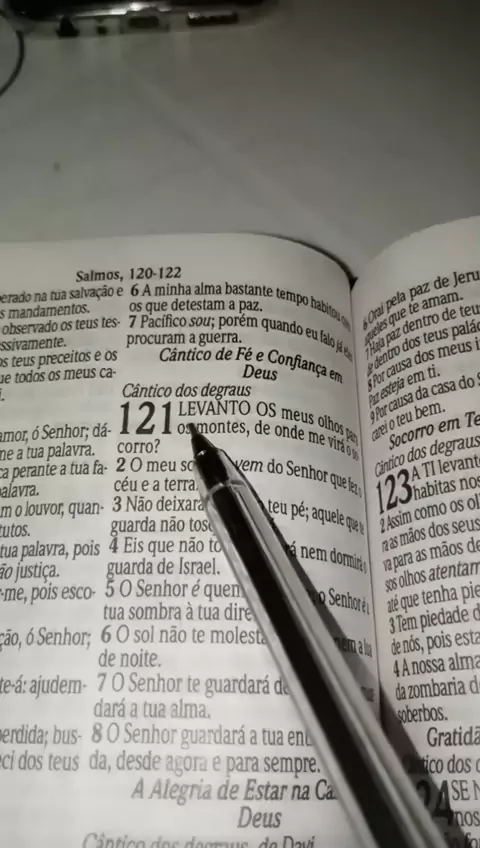 Salmos, 120-122
erado na tua salvação e
s mandamentos.
observado os teus tes-
ssivamente.
os teus preceitos e os
ue todos os meus ca-
amor, ó Senhor; dá-
ne a tua palavra.
ca perante a tua fa-
palavra.
m o louvor, quan-
tutos.
tua palavra, pois
ão justiça.
-me, pois esco-
ção, ó Senhor;
te-á: ajudem-
perdida; bus-
eci dos teus
6 A minha alma bastante tempo habitou
os que detestam a paz.
7 Pacífico sou; porém quando eu falo já
procuram a guerra.
Cântico de Fé e Confiança em
Deus
Cântico dos degraus
121 LEVANTO OS meus olhos para
os montes, de onde me virá o so-
corro?
2 O meu so vem do Senhor que fez o
céu e a terra.
3 Não deixará teu pé; aquele que te
guarda não tos
4 Eis que não to nem dormirá o
guarda de Israel.
5 O Senhor é quem o Senhor é a
tua sombra à tua dire
6 O sol não te molest nem a lua
de noite.
7 O Senhor te guardará d
dará a tua alma.
8 O Senhor guardará a tua en
da, desde agora e para sempre.
A Alegria de Estar na Ca
Deus
Cântico dos degraus, de Davi
6 Orai pela paz de Jeru
aqueles que te amam.
7 Haja paz dentro de teus
de dentro dos teus palác
8 Por causa dos meus i
Paz esteja em ti.
9 Por causa da casa do S
carei o teu bem.
Socorro em
Cântico dos degraus
123 A TI levant
habitas nos
2 Assim como os ol
ra as mãos dos seus
va para as mãos de
sos olhos atentam
até que tenha pie
3 Tem piedade d
de nós, pois esta
4 A nossa alma
da zombaria d
soberbos.
Gratidã
tico dos d
24 SE N
nos